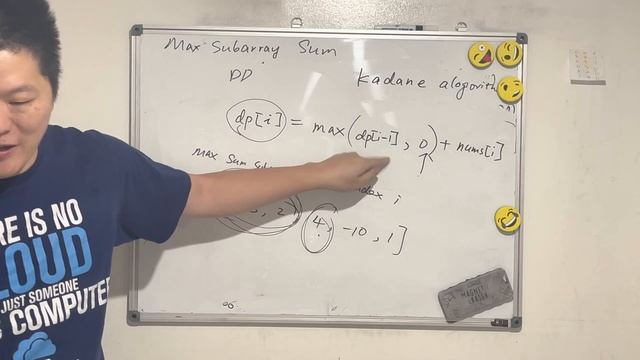 Max Subarray Sum
DD
Kadane alogorith
dp[i] = max(dp[i-1], 0) + nums[i]
max Sum
i
2
4, -10, 1]
RE IS NO
LOUD
JUST SOMEONE
COMPUTER
MAGNET
ERASER